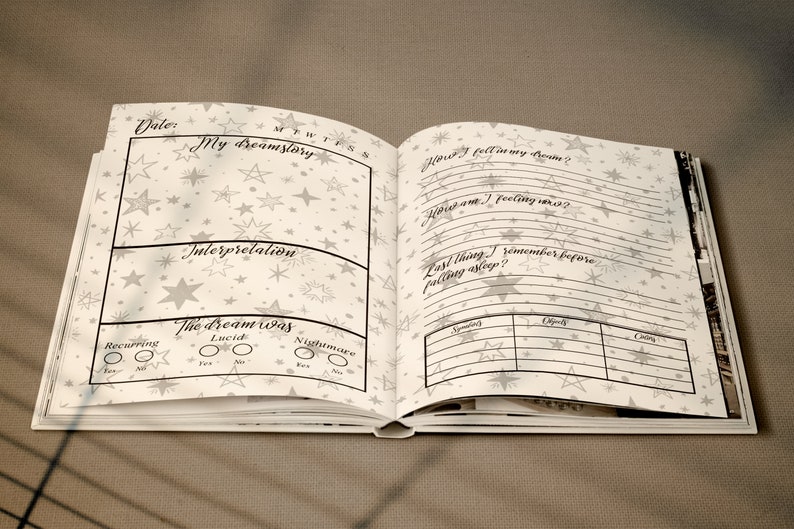 Date:
M T W T F S S
My dreamstory
Interpretation
The dream was
Recurring Lucid Nightmare
Yes No Yes No Yes No
How I felt in my dream?
How am I feeling now?
Last thing I remember before
falling asleep?
Symbols Objects Colors